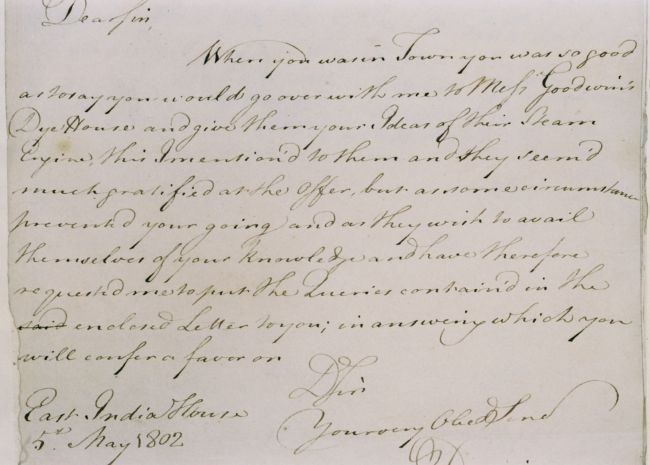 Dear Sir,
When you was in Town you was so good
as to say you would go over with me to Mess.rs Goodwin's
Dye House and give them your Ideas of their Steam
Engine, this I mention'd to them and they seem'd
much gratified at the Offer, but as some circumstance
prevented your going and as they wish to avail
themselves of your Knowledge and have therefore
requested me to put the Queries contain'd in the
said enclosed Letter to you; in answering which you
will confer a favor on
D Sir
Your very Obed Serv
East India House
5th May 1802